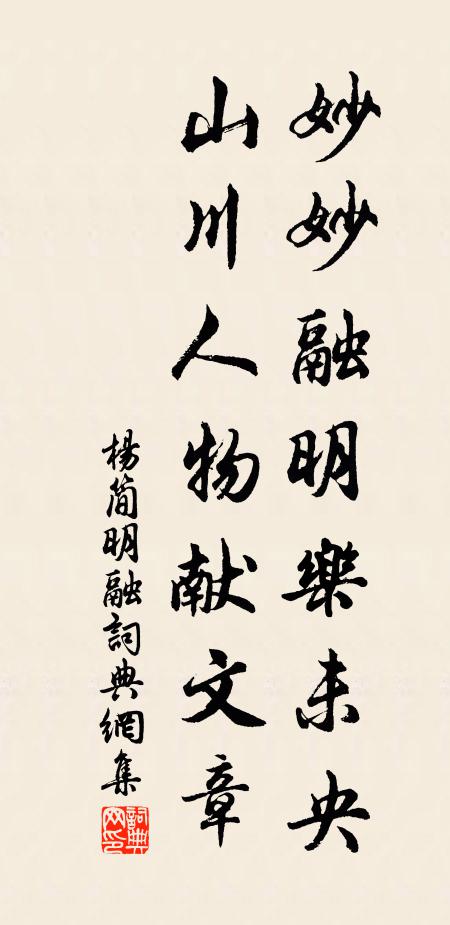 妙妙融明樂未央
山川人物献文章
楊简明融詞典網集
詞典
网印